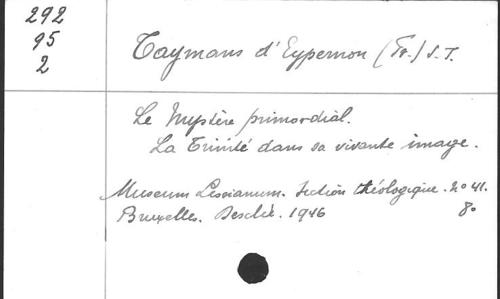 292
95
2
Taymans d'Eypernon (Fr.) S.J.
Le Mystère primordial.
La Trinité dans sa vivante image.
Museum Lessianum. Section théologique. 2° 41.
Bruxelles. Desclée. 1946 8°